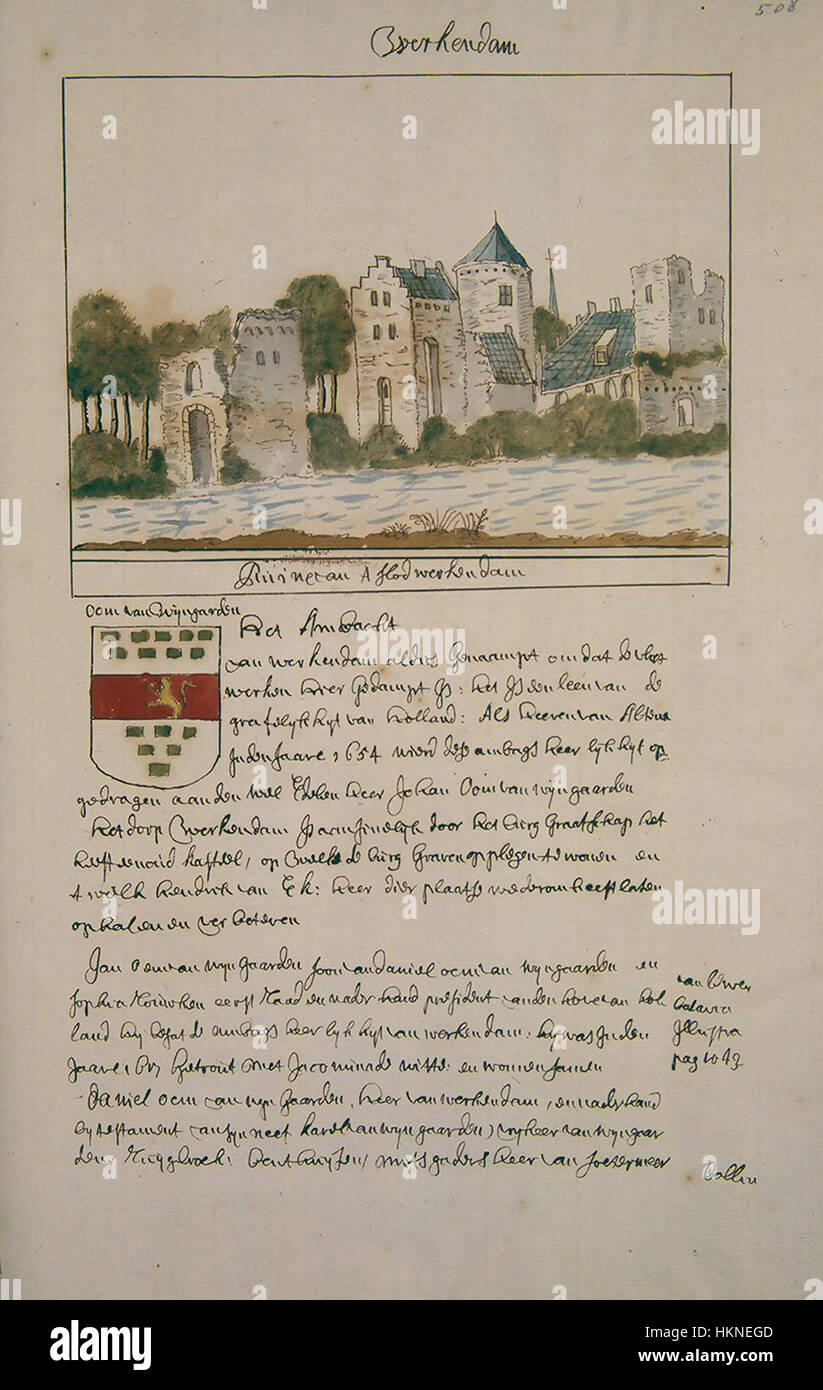 508
Werkendam
Ruine van 't slot werkendam
Oom van Wijngarden
Het Ambacht
van werkendam aldus Genaampt om dat de vliet
werken hier Gedampt is: het is een leen van de
grafelijkhijt van Holland: Als heeren van Altena
Inden Jaare 1654 wierd dese ambags heer lijk hijt op
gedragen aan den wel Edelen heer Johan Oom van wijngaarden
het dorp Werkendam is aansinelijk door het burg Graafschap het
heeft een oud kasteel, op welk de burg Graven op plegen te wonen en
't welk hendrik van Ek: heer dier plaatse wederom heeft laten
op halen en verbeteren
Jan Oem van wijngaarden soon van daniel oem van wijngaarden en
sophia eerst Raad en nader hand president van den hove van hol
land hij besat de ambags heer lijk hijt van werkendam: hij was Inden
Jaare getrout met Jacomina de witte: en women samen
Daniel oem van wijn Gaarden, heer van werkendam, en nader hand
bij testament van zijn neef karel van wijn gaarden) vrijheer van wijngaar
den, Ruygbroek, benthuijsen, mits gaders heer van soetermeer
van Lewen
batavia
Illustra
pag 1042
alamy
alamy
Image ID: HKNEGD
www.alamy.com